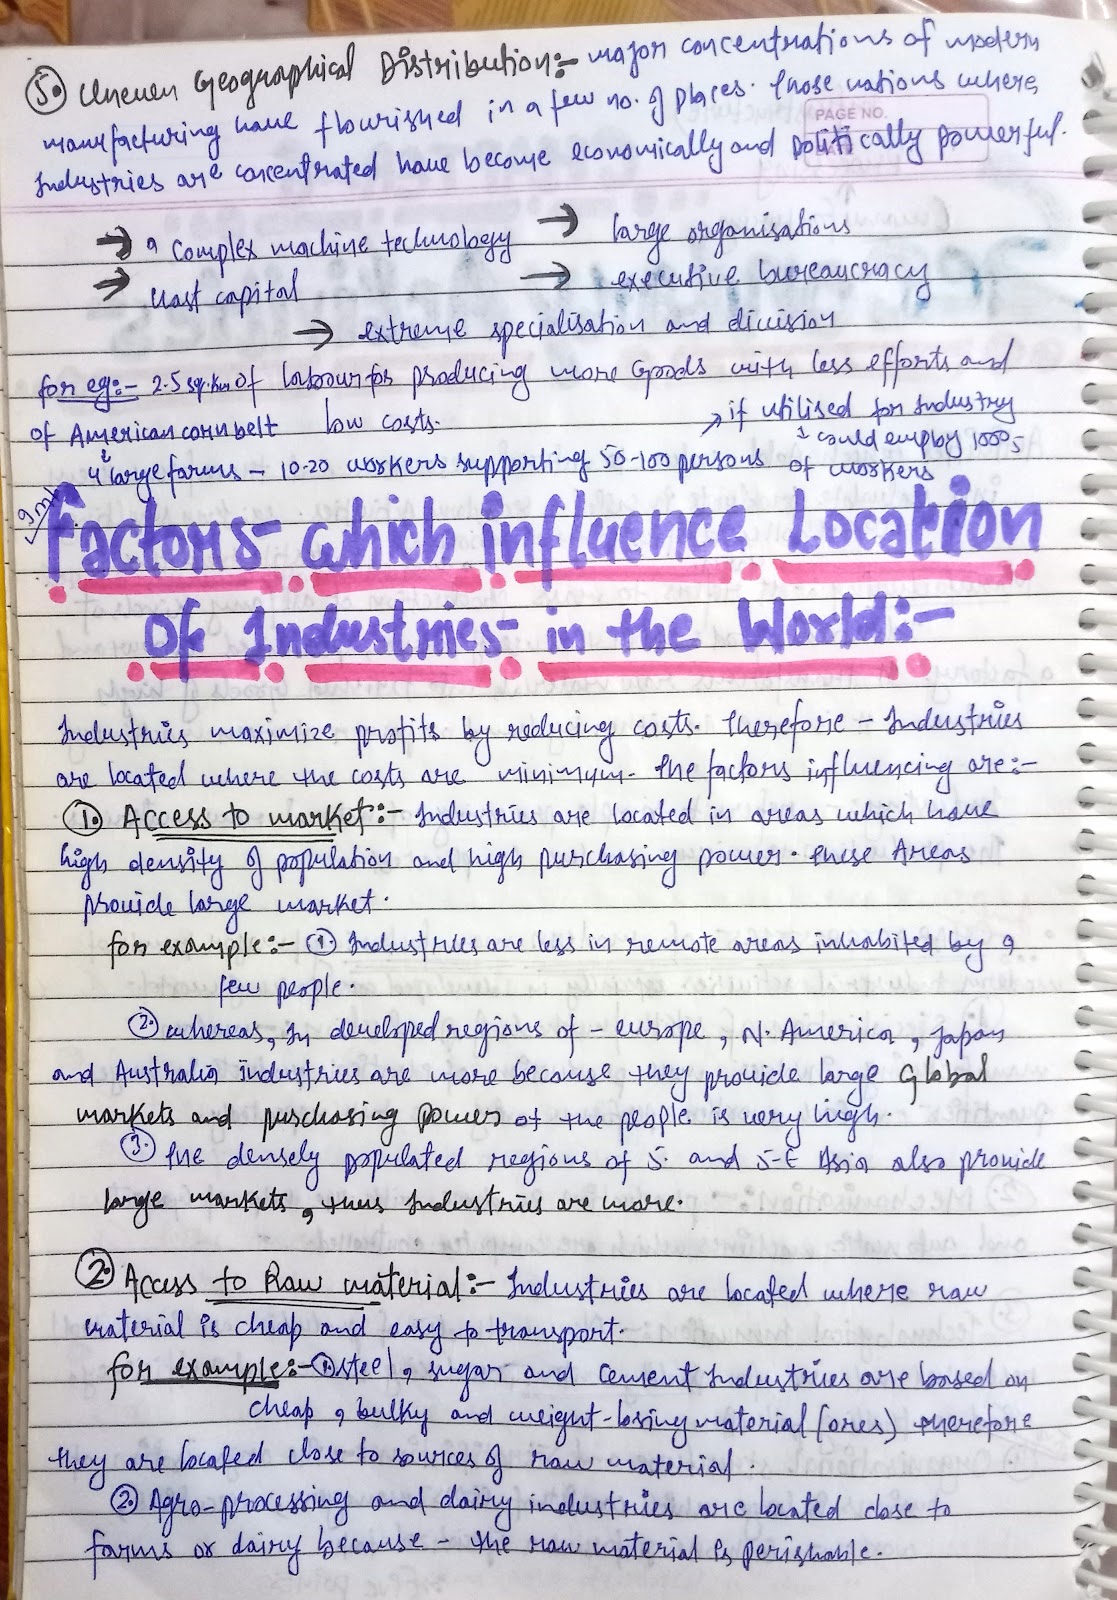 5. Uneven Geographical Distribution:- major concentrations of modern
manufacturing have flourished in a few no. of places. Those nations where
PAGE NO.
Industries are concentrated have become economically and politically powerful.
→ a complex machine technology → large organisations
→ Vast capital → executive bureaucracy
→ extreme specialisation and division
for eg:- 2.5 sq.km of labour for producing more Goods with less efforts and
of American corn belt low costs. → if utilised for Industry
↓ could employ 1000s
4 large farms - 10-20 workers supporting 50-100 persons of workers
Factors- which influence Location
Of Industries- in the World:-
Industries maximize profits by reducing costs. Therefore - Industries
are located where the costs are minimum. The factors influencing are:-
1. Access to market:- Industries are located in areas which have
high density of population and high purchasing power. These Areas
provide large market.
for example:- 1. Industries are less in remote areas inhabited by a
few people.
2. whereas, In developed regions of - europe, N. America, Japan
and Australia industries are more because they provide large Global
markets and purchasing power of the people is very high.
3. The densely populated regions of S. and S-E Asia also provide
large markets, thus Industries are more.
2. Access to Raw material:- Industries are located where raw
material is cheap and easy to transport.
for example:- 1. steel, sugar and cement Industries are based on
cheap, bulky and weight-losing material (ores) therefore
they are located close to sources of raw material.
2. Agro-processing and dairy industries are located close to
farms or dairy because - the raw material is perishable.